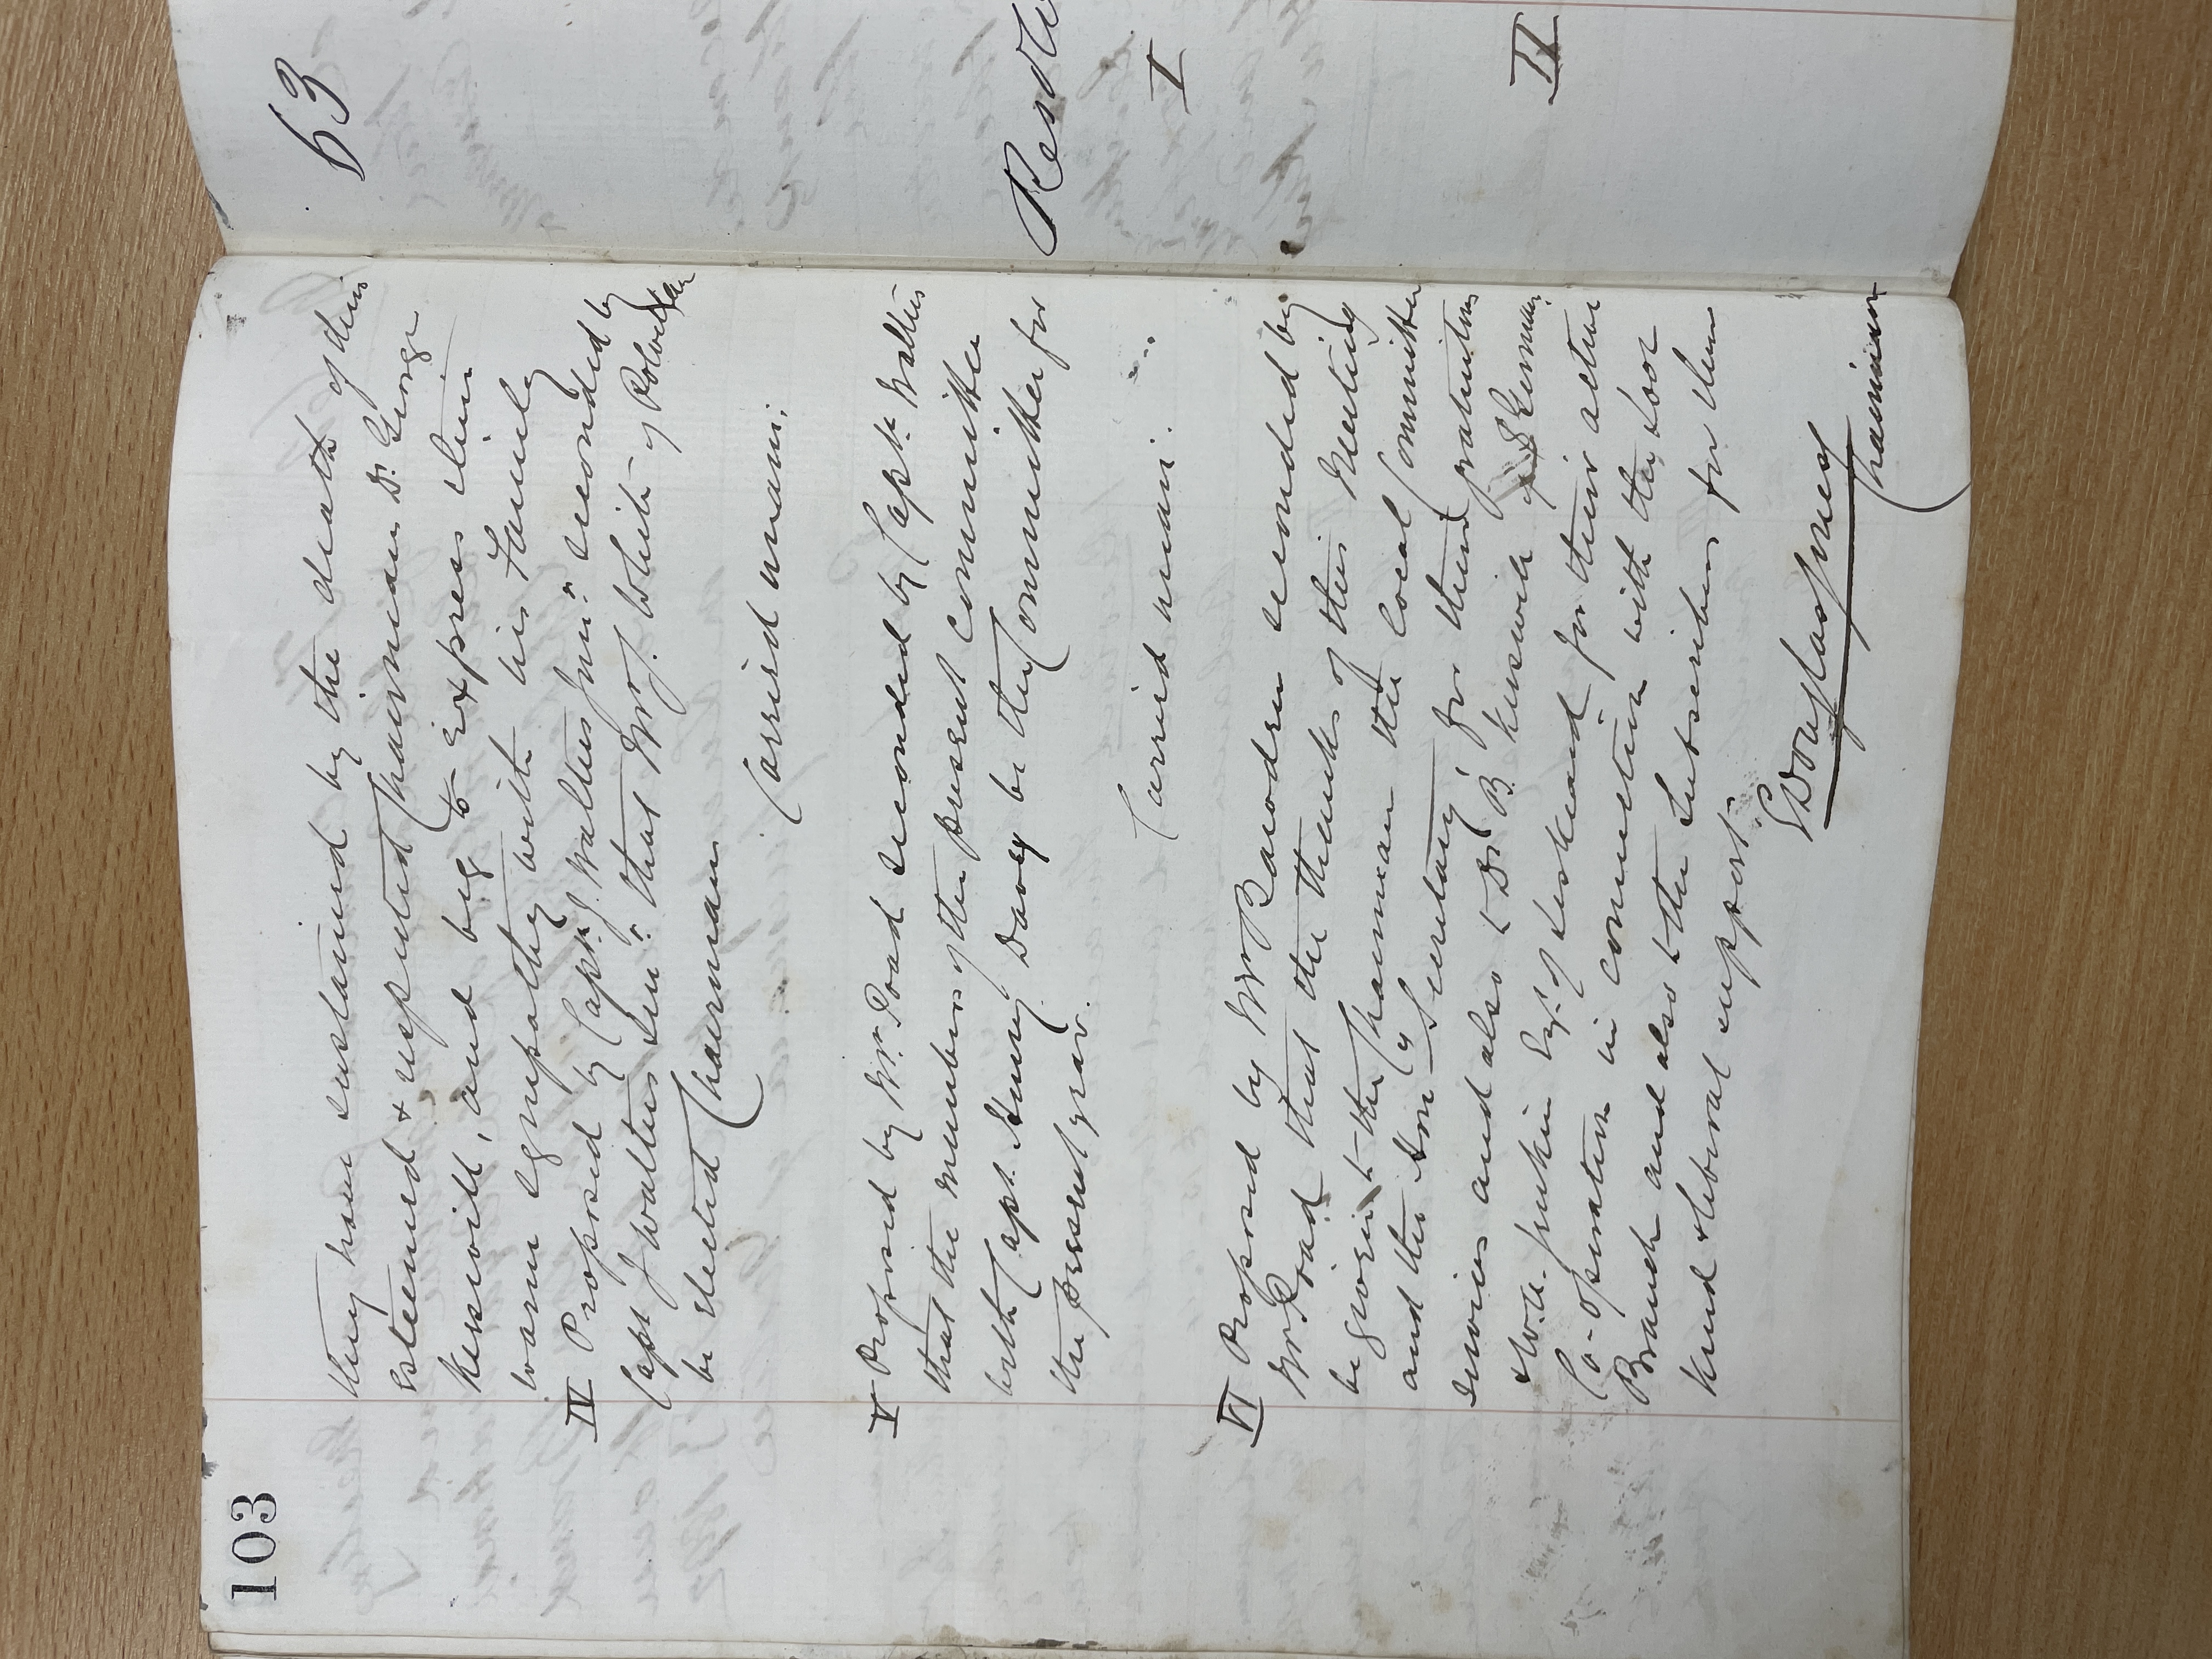 103
they have sustained by the death of their
esteemed & respected Chairman Dr. George
Kerswill, and beg to Express their
warm sympathy with his Family
IV Proposed by Capt J. Walters Jun: seconded by
Capt J Walters Sen: that Mr J. White of
be elected Chairman
Carried unani:
V Proposed by Mr. Toad seconded by Capt. Walters
that the members of the present Committee
with Capt. Henry Davey be the Committee for
the present year.
Carried unani:
VI Proposed by Mr seconded by
Mr Toad that the thanks of this Meeting
be given to the Chairman the Local Committee
and the Hon y Secretary for their gratuitous
services and also to Dr. B. Kerswill of St Germans
& W. A. Jenkin Esq. of Liskeard for their active
Co-operation in connection with the Looe
Branch and also to the Subscribers for their
kind & liberal support.
Chairman
63
Resol
I
II